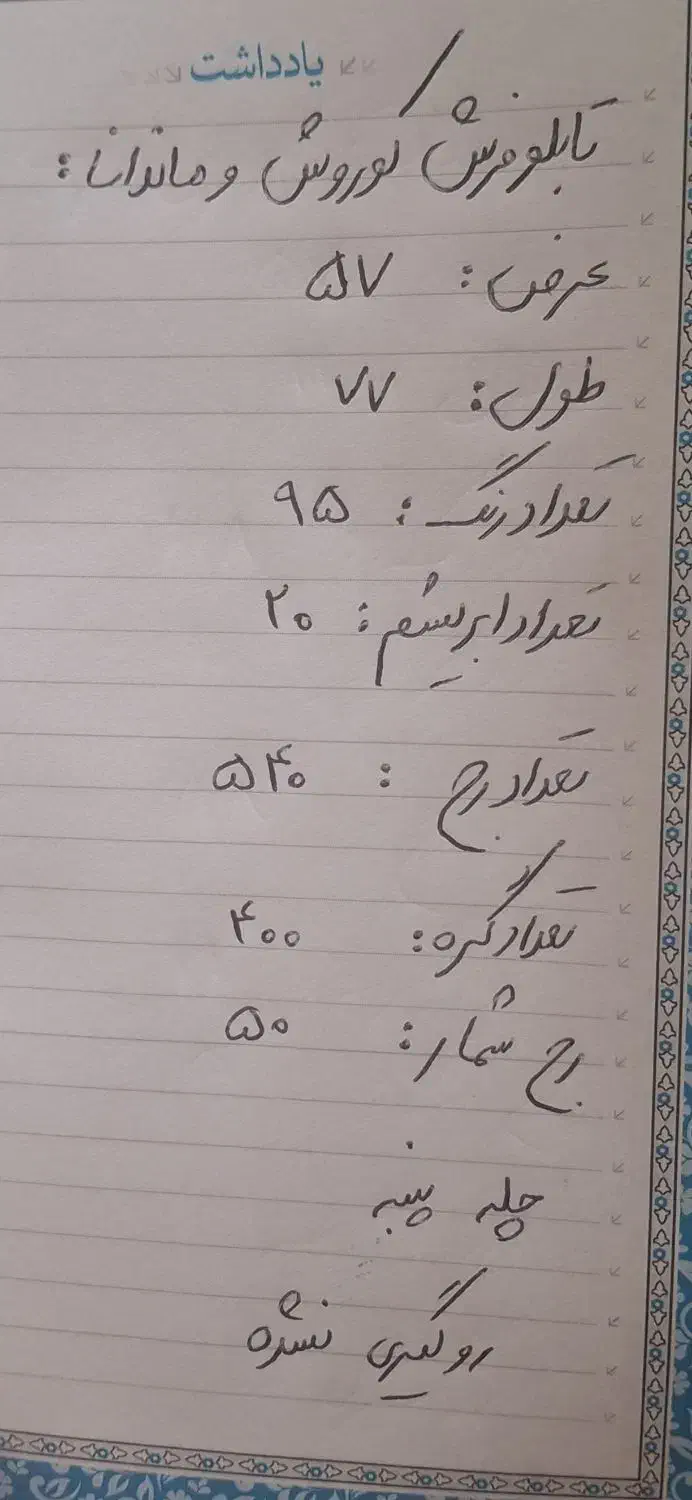 یادداشت
تابلو فرش کوروش و ماندانا :
عرض : ۵۷
طول : ۷۷
تعداد رنگ : ۹۵
تعداد ابریشم : ۲۰
تعداد رج : ۵۴۰
تعداد گره : ۴۰۰
رج شمار : ۵۰
چله پنبه
روگیری نشده